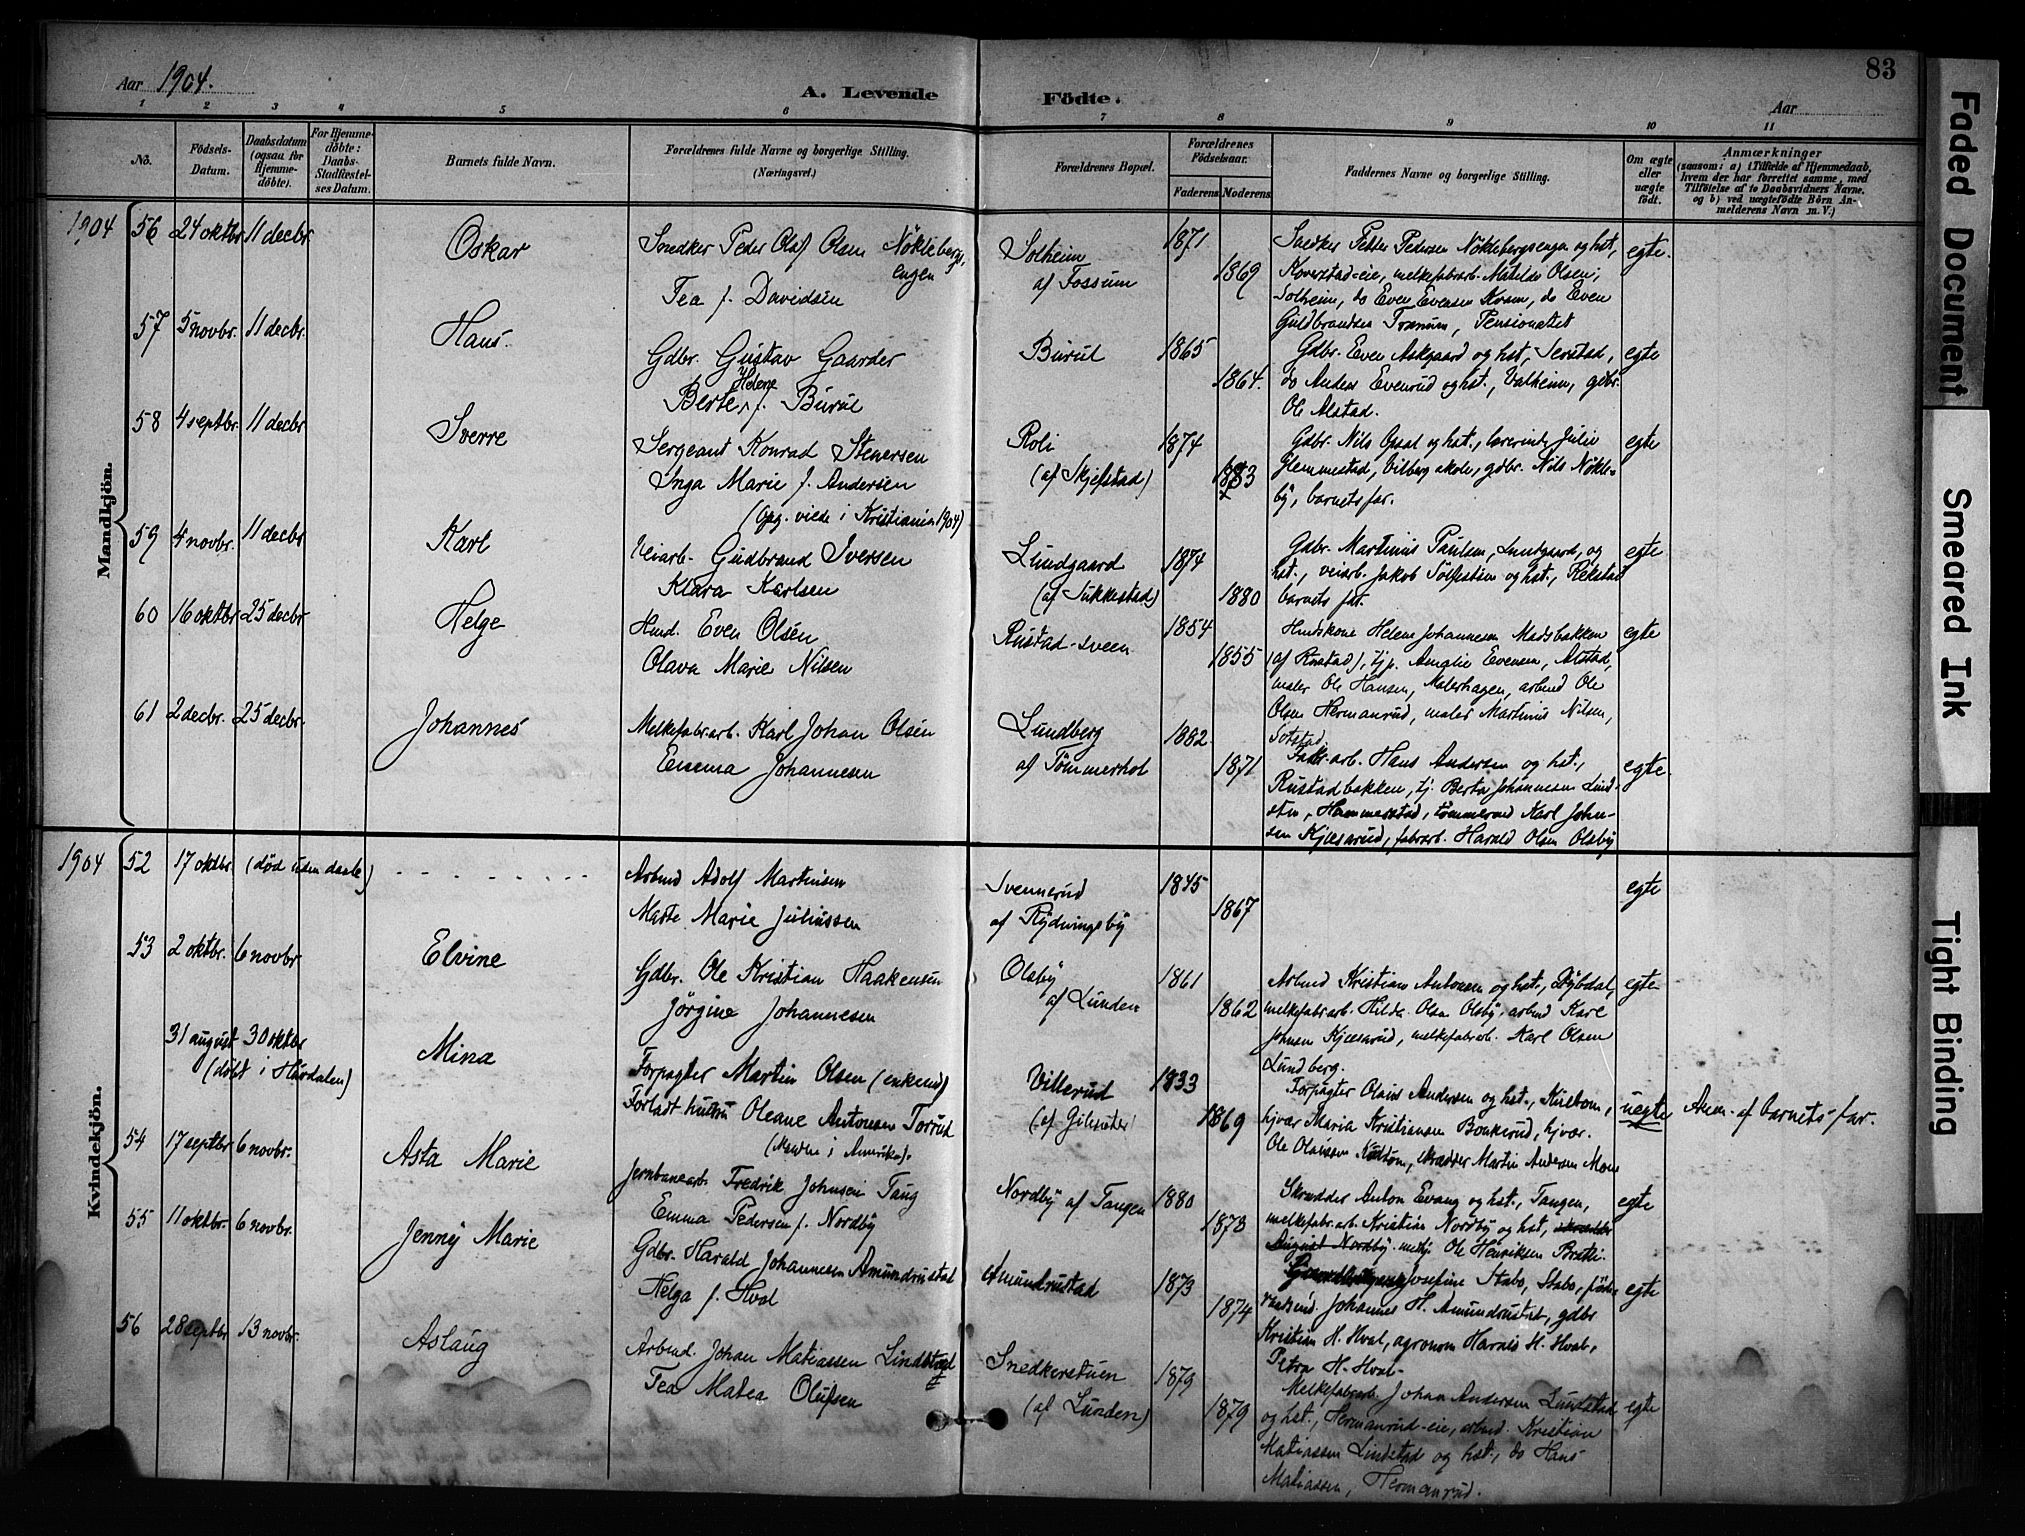 Aar 1904.
A. Levende Födte.
Aar
83
1 2 3 4 5 6 7 8 9 10 11
No.
Födsels-Datum.
Daabsdatum (ogsaa for Hjemme-döbte).
For Hjemme-döbte: Daabs-Stadfæstel-ses Datum.
Barnets fulde Navn.
Forældrenes fulde Navne og borgerlige Stilling. (Næringsvei.)
Forældrenes Bopæl.
Forældrenes Födselsaar.
Faderens Moderens
Faddernes Navne og borgerlige Stilling.
Om ægte eller uægte födt.
Anmærkninger
(saasom: a) i Tilfælde af Hjemmedaab, hvem der har forrettet samme, med Tilföielse af to Daabsvidners Navne, og b) ved uægtefödte Börn An-melderens Navn m. V.)
Mandkjön.
1904 56 24 oktbr. 11 decbr. Oskar
Snedker Peder Olaf Olsen Nökleberg-
engen
Tea f. Davidsen
Solheim
af Fossum
1871
1869
Snedker Petter Pedersen Nöklebergsengen og hst,
Koverstad-eie, melkefabrarb. Matilde Olsen,
Solheim, do Even Evensen Kvem, do Even
Guldbrandsen Tranum, Pensionatet
egte.
57 5 novbr. 11 decbr. Hans.
Gdbr. Gustav Gaarder
Berte Helene f. Burul
Burul
1865
1864.
Gdbr. Even Askgaard og hst, Serstad,
do Anders Evenrud og hst., Valheim, gdbr.
Ole Alstad.
egte
58 4 septbr. 11 decbr Sverre
Sergeant Konrad Stenersen
Inga Marie f. Andersen
(Opg. viede i Kristiania 1904)
Roli
(af Skjefstad)
1874
1883
Gdbr. Nils Opsal og hst., lærerinde Julie
Glemmestad, Vilberg skole, gdbr. Nils Nökle-
by, barnets far.
egte
59 4 novbr. 11 decbr Karl
Veiarb. Gudbrand Iversen
Klara Karlsen
Lundgaard
(af Sukkestad)
1874
1880
Gdbr. Martinus Paulsen, Lundgaard, og
hst., veiarb. Jakob Tolfsstuen og hst., Rekstad
barnets far.
egte
60 16 oktbr. 25 decbr. Helge
Hmd. Even Olsen
Olava Marie Nilsen
Rustad-sveen
1854
1855
Hmdskone Helene Johannesen Madsbakken
(af Rustad), tjp. Amalie Evensen, Alstad,
maler Ole Hansen, Malerhagen, arbmd Ole
Olsen Hermanrud, maler Martinus Nilsen,
Sotstad.
egte
61 2 decbr. 25 decbr. Johannes
Melkefabr.arb. Karl Johan Olsen
Emma Johannesen
Lundberg
af Tömmerhol
1882.
1871
Fabr.arb. Hans Andersen og hst.,
Rustadbakken, tj. Berta Johannesen Lund-
sten, Hammerstad, tömmermd Karl John-
sen Kjæsarud, fabrarb. Harald Olsen Olsby
egte.
Kvindekjön.
1904 52 17 oktbr. (död uden daab)
Arbmd Adolf Martinsen
Marte Marie Juliussen
Svennerud
af Rydningsby
1845
1867
egte
53 2 oktbr. 6 novbr. Elvine
Gdbr. Ole Kristian Haakensen
Jörgine Johannesen
Olsby
af Lunden
1861
1862
Arbmd Kristian Antonsen og hst., Dybdal,
melkefabrarb. Hilda Olsen Olsby, arbmd Karl
Johnsen Kjæsarud, melkefabrarb. Karl Olsen
Lundberg.
egte
31 august 30 oktbr
(döbt i Hurdalen)
Mina
Forpagter Martin Olsen (enkemd)
Forladt hustru Oleane Antonsen Torrud
(Manden i Amerika).
Villerud
(af Gilsæter)
1833
1869
Forpagter Olaus Andersen og hst.,
hjvær Maria Kristiansen Bonkerud, hjvær.
Ole Olaussen, skrædder Martin Andersen Moen
uegte
Anm. af barnets far.
54 17 septbr 6 novbr. Asta Marie
Jernbanearb. Fredrik Johnsen Taug
Emma Pedersen f. Nordby
Nordby af Tangen
1880
1873
Skrædder Anton Evang og hst., Tangen,
melkefabr.arb. Kristian Nordby og hst,
Nordby. Ole Henriksen
egte
55 11 oktbr. 6 novbr. Jenny Marie
Gdbr. Harald Johannesen Amundrustad
Helga f. Hval
Amundrustad
1873
1874
Josefine Stabo, Stabo,
Johannes H. Amundrustad, gdbr
Kristian H. Hval, agronom H. Hval,
Petra H. Hval.
egte
56 28 septbr 13 novbr. Aslaug
Arbmd. Johan Matiassen Lindstad
Tea Matea Olufsen
Snedkerstuen
(af Lunden)
1879
1879
Melkefabrarb. Johan Andersen Lundstad
og hst., Hermanrud-eie, arbmd. Kristian
Matiassen Lindstad og hst., do Hans
Matiassen, Hermanrud.
egte
Faded Document
Smeared Ink
Tight Binding